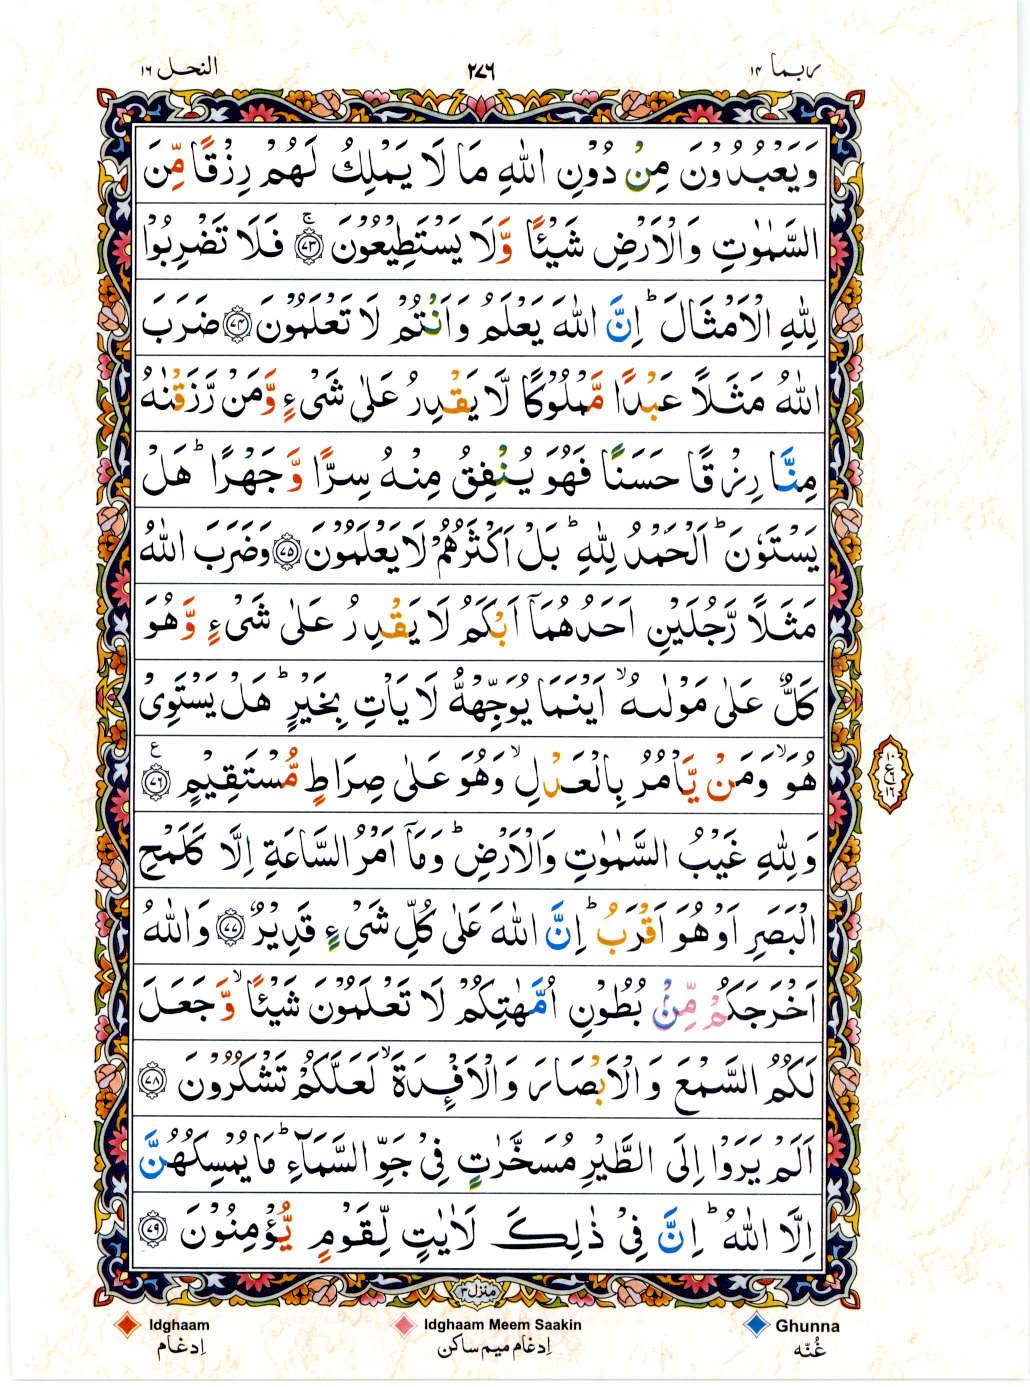 ربما ۱۴
۲۷۶
النحل ۱۶
وَيَعْبُدُوْنَ مِنْ دُوْنِ اللّٰهِ مَا لَا يَمْلِكُ لَهُمْ رِزْقًا مِّنَ
السَّمٰوٰتِ وَالْاَرْضِ شَيْـًٔا وَّلَا يَسْتَطِيْعُوْنَ ۚ‏﴿۷۳﴾ فَلَا تَضْرِبُوْا
لِلّٰهِ الْاَمْثَالَ ؕ اِنَّ اللّٰهَ يَعْلَمُ وَاَنْتُمْ لَا تَعْلَمُوْنَ ﴿۷۴﴾ ضَرَبَ
اللّٰهُ مَثَلًا عَبْدًا مَّمْلُوْكًا لَّا يَقْدِرُ عَلٰى شَىْءٍ وَّمَنْ رَّزَقْنٰهُ
مِنَّا رِزْقًا حَسَنًا فَهُوَ يُنْفِقُ مِنْهُ سِرًّا وَّجَهْرًا ؕ هَلْ
يَسْتَوٗنَ ؕ اَلْحَمْدُ لِلّٰهِ ؕ بَلْ اَكْثَرُهُمْ لَا يَعْلَمُوْنَ ﴿۷۵﴾ وَضَرَبَ اللّٰهُ
مَثَلًا رَّجُلَيْنِ اَحَدُهُمَاۤ اَبْكَمُ لَا يَقْدِرُ عَلٰى شَىْءٍ وَّهُوَ
كَلٌّ عَلٰى مَوْلٰىهُ ۙ اَيْنَمَا يُوَجِّهْهُّ لَا يَاْتِ بِخَيْرٍ ؕ هَلْ يَسْتَوِىْ
هُوَ ۙ وَمَنْ يَّاْمُرُ بِالْعَدْلِ ۙ وَهُوَ عَلٰى صِرَاطٍ مُّسْتَقِيْمٍ ﴿۷۶﴾ ع
وَلِلّٰهِ غَيْبُ السَّمٰوٰتِ وَالْاَرْضِ ؕ وَمَاۤ اَمْرُ السَّاعَةِ اِلَّا كَلَمْحِ
الْبَصَرِ اَوْ هُوَ اَقْرَبُ ؕ اِنَّ اللّٰهَ عَلٰى كُلِّ شَىْءٍ قَدِيْرٌ ﴿۷۷﴾ وَاللّٰهُ
اَخْرَجَكُمْ مِّنْ بُطُوْنِ اُمَّهٰتِكُمْ لَا تَعْلَمُوْنَ شَيْـًٔا ۙ وَّجَعَلَ
لَكُمُ السَّمْعَ وَالْاَبْصَارَ وَالْاَفْـِٕدَةَ ۙ لَعَلَّكُمْ تَشْكُرُوْنَ ﴿۷۸﴾
اَلَمْ يَرَوْا اِلَى الطَّيْرِ مُسَخَّرٰتٍ فِىْ جَوِّ السَّمَآءِ ؕ مَا يُمْسِكُهُنَّ
اِلَّا اللّٰهُ ؕ اِنَّ فِىْ ذٰلِكَ لَاٰيٰتٍ لِّقَوْمٍ يُّؤْمِنُوْنَ ﴿۷۹﴾
منزل ۳
Idghaam
Idghaam Meem Saakin
Ghunna
اِدغام
اِدغام میم ساکن
غُنّه